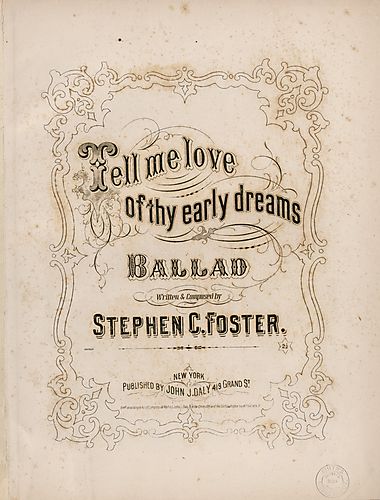 Tell me love
of thy early dreams
BALLAD
Written & Composed by
STEPHEN C. FOSTER.
2½
NEW YORK
PUBLISHED BY JOHN J. DALY 419 GRAND ST.